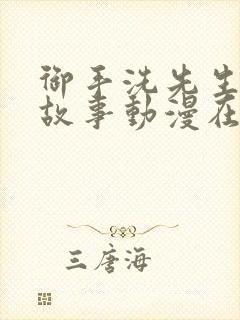 御手洗先生
故事動漫在
三唐海